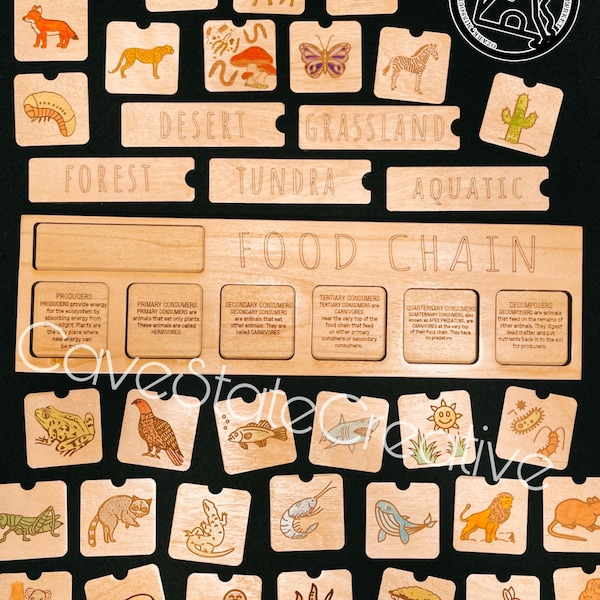 DESERT
GRASSLAND
FOREST
TUNDRA
AQUATIC
FOOD CHAIN
PRODUCERS
PRODUCERS provide energy
for the ecosystem by
absorbing energy from
sunlight. Plants are
place where
new energy
can be
PRIMARY CONSUMERS
PRIMARY CONSUMERS are
animals that eat only plants.
These animals are called
HERBIVORES.
SECONDARY CONSUMERS
SECONDARY CONSUMERS
are animals that eat
other animals. They are
called CARNIVORES
TERTIARY CONSUMERS
TERTIARY CONSUMERS are
CARNIVORES
near the very top of the
food chain that feed
on either primary
consumers or secondary
consumers.
QUARTERNARY CONSUMERS
QUARTERNARY CONSUMERS, also
known as APEX PREDATORS, are
CARNIVORES at the very top
of their food chain. They have
no predators
DECOMPOSERS
DECOMPOSERS are animals
that feed on the remains of
other animals. They digest
dead matter and put
nutrients back in to the soil
for producers.
CaveStateCreative